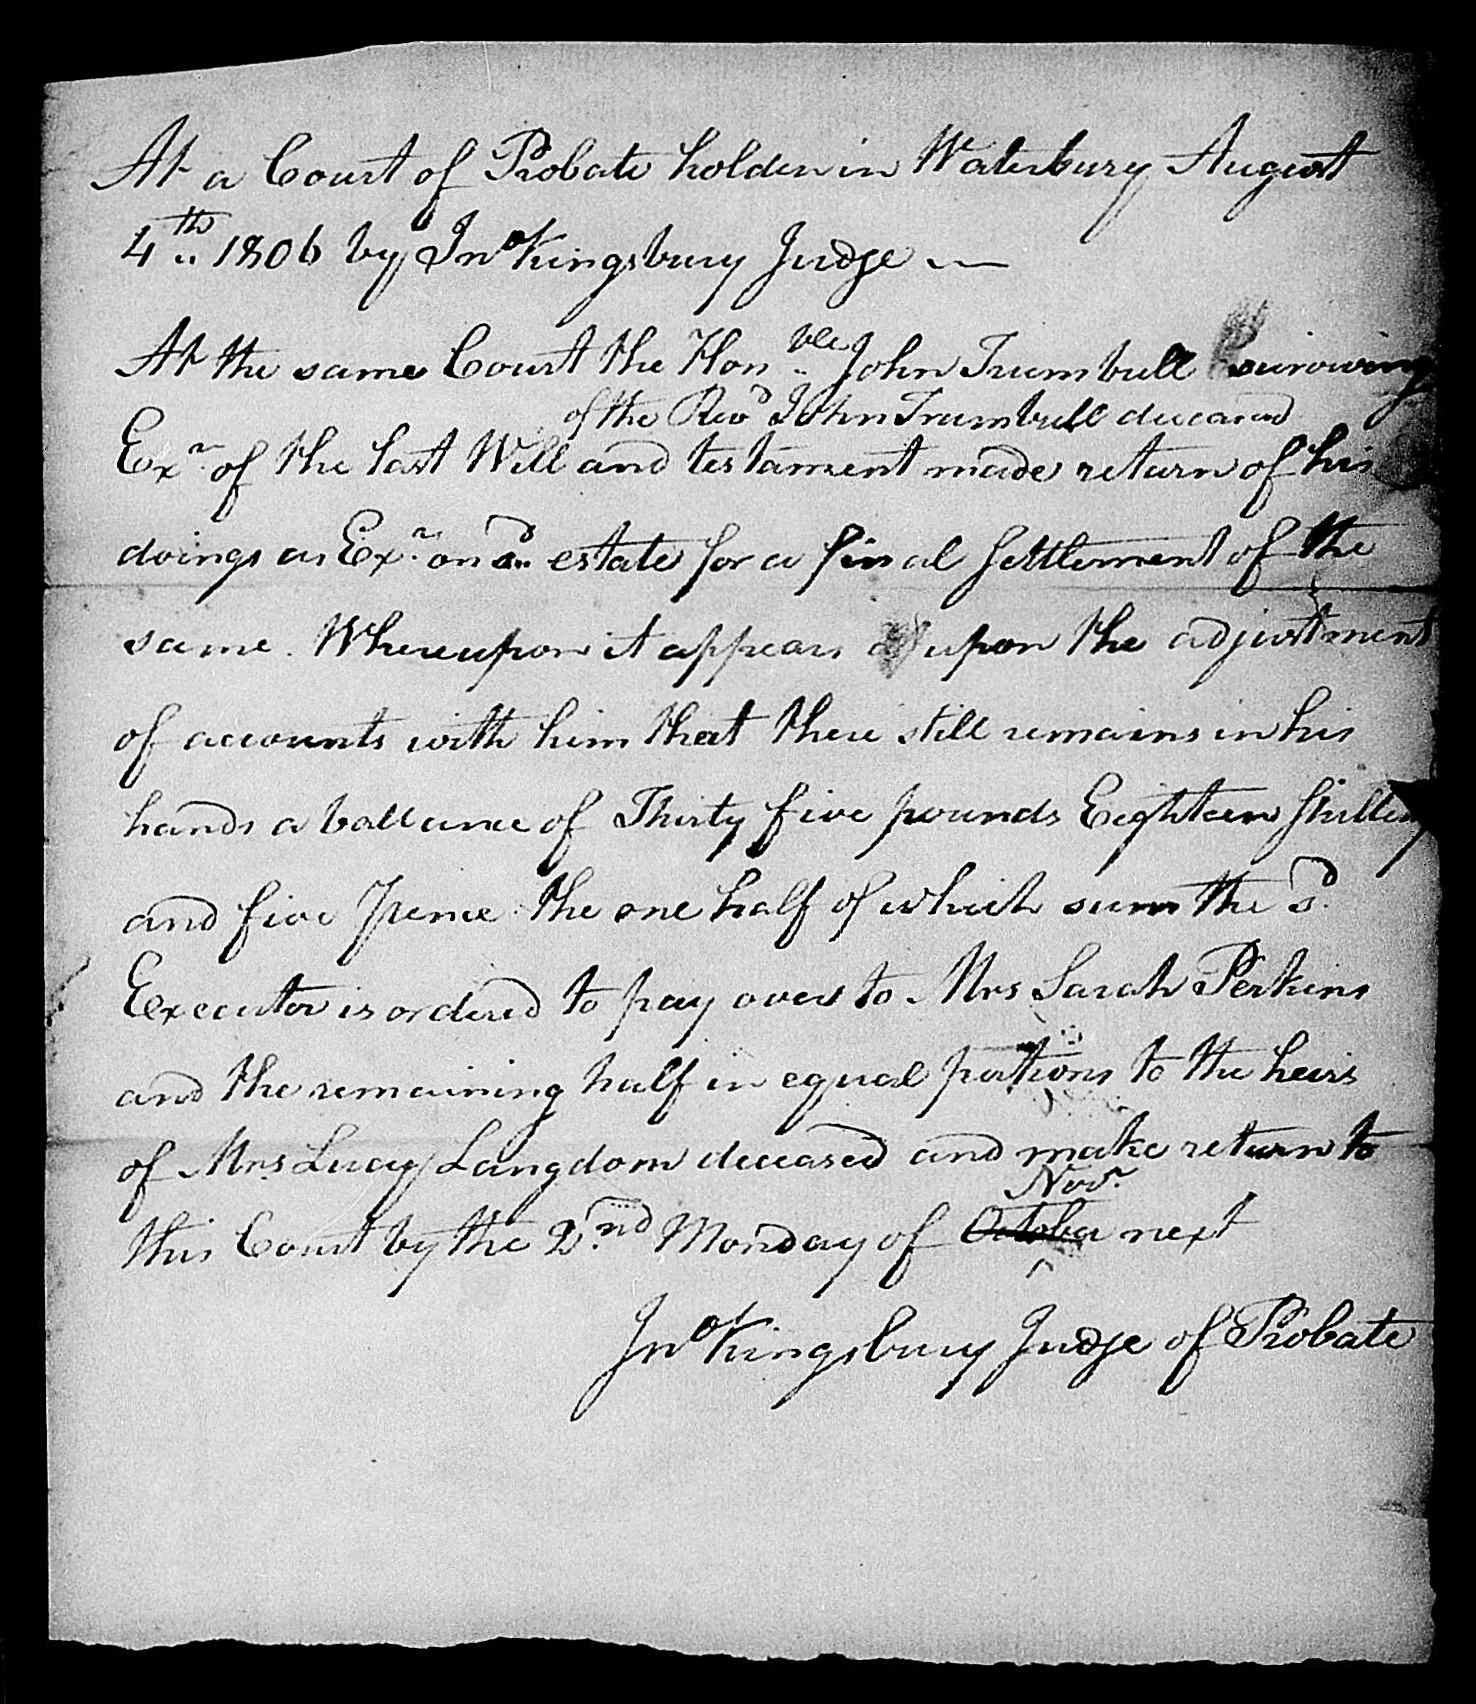 At a Court of Probate holden in Waterbury August
4th 1806 by Jno Kingsbury Judge
At the same Court the Honble John Trumbull surviving
of the Revd John Trumbull deceased
Exr of the last Will and testament made return of his
doings as Exr on sd estate for a final settlement of the
same. Whereupon it appears upon the adjustment
of accounts with him that there still remains in his
hands a ballance of Thirty five pounds Eighteen Shillings
and five Pence the one half of which sum the sd
Executor is ordered to pay over to Mrs Sarah Perkins
and the remaining half in equal portions to the heirs
of Mrs Lucy Langdon deceased and make return to
Novr
this Court by the 2nd Monday of October next
Jno Kingsbury Judge of Probate